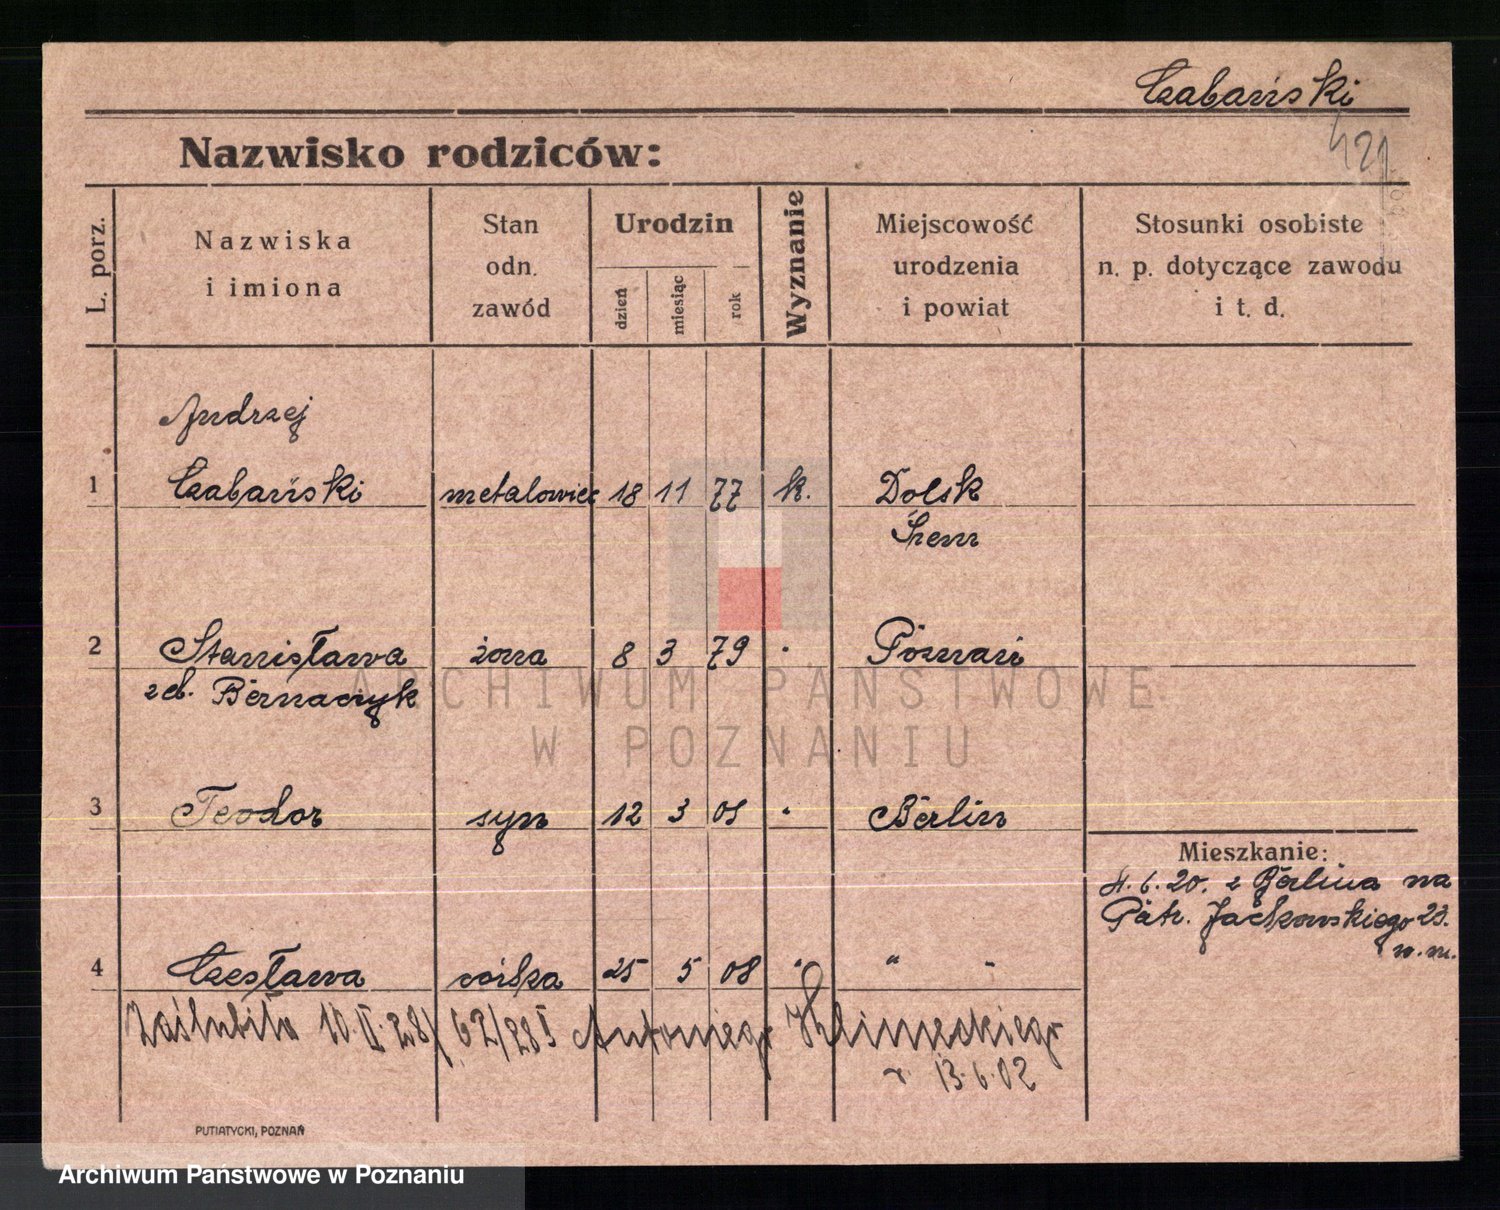 Czabański
421
Nazwisko rodziców:
L. porz.
Nazwiska
i imiona
Stan
odn.
zawód
Urodzin
dzień
miesiąc
rok
Wyznanie
Miejscowość
urodzenia
i powiat
Stosunki osobiste
n. p. dotyczące zawodu
i t. d.
Andrzej
1 Czabański metalowiec 18 11 77 k. Dolsk
Śrem
2 Stanisława żona 8 3 79 " Poznań
z d. Bernaczyk
3 Teodor syn 12 3 05 " Berlin
Mieszkanie:
4.6.20. z Berlina na
Patr. Jackowskiego 23.
w. m.
4 Czesława córka 25 5 08 " " "
Zaślubiła 10.II.28 / 62/28 I Antoniego Klimeckiego
13.6.02
PUTIATYCKI, POZNAŃ
ARCHIWUM PAŃSTWOWE
W POZNANIU
Archiwum Państwowe w Poznaniu